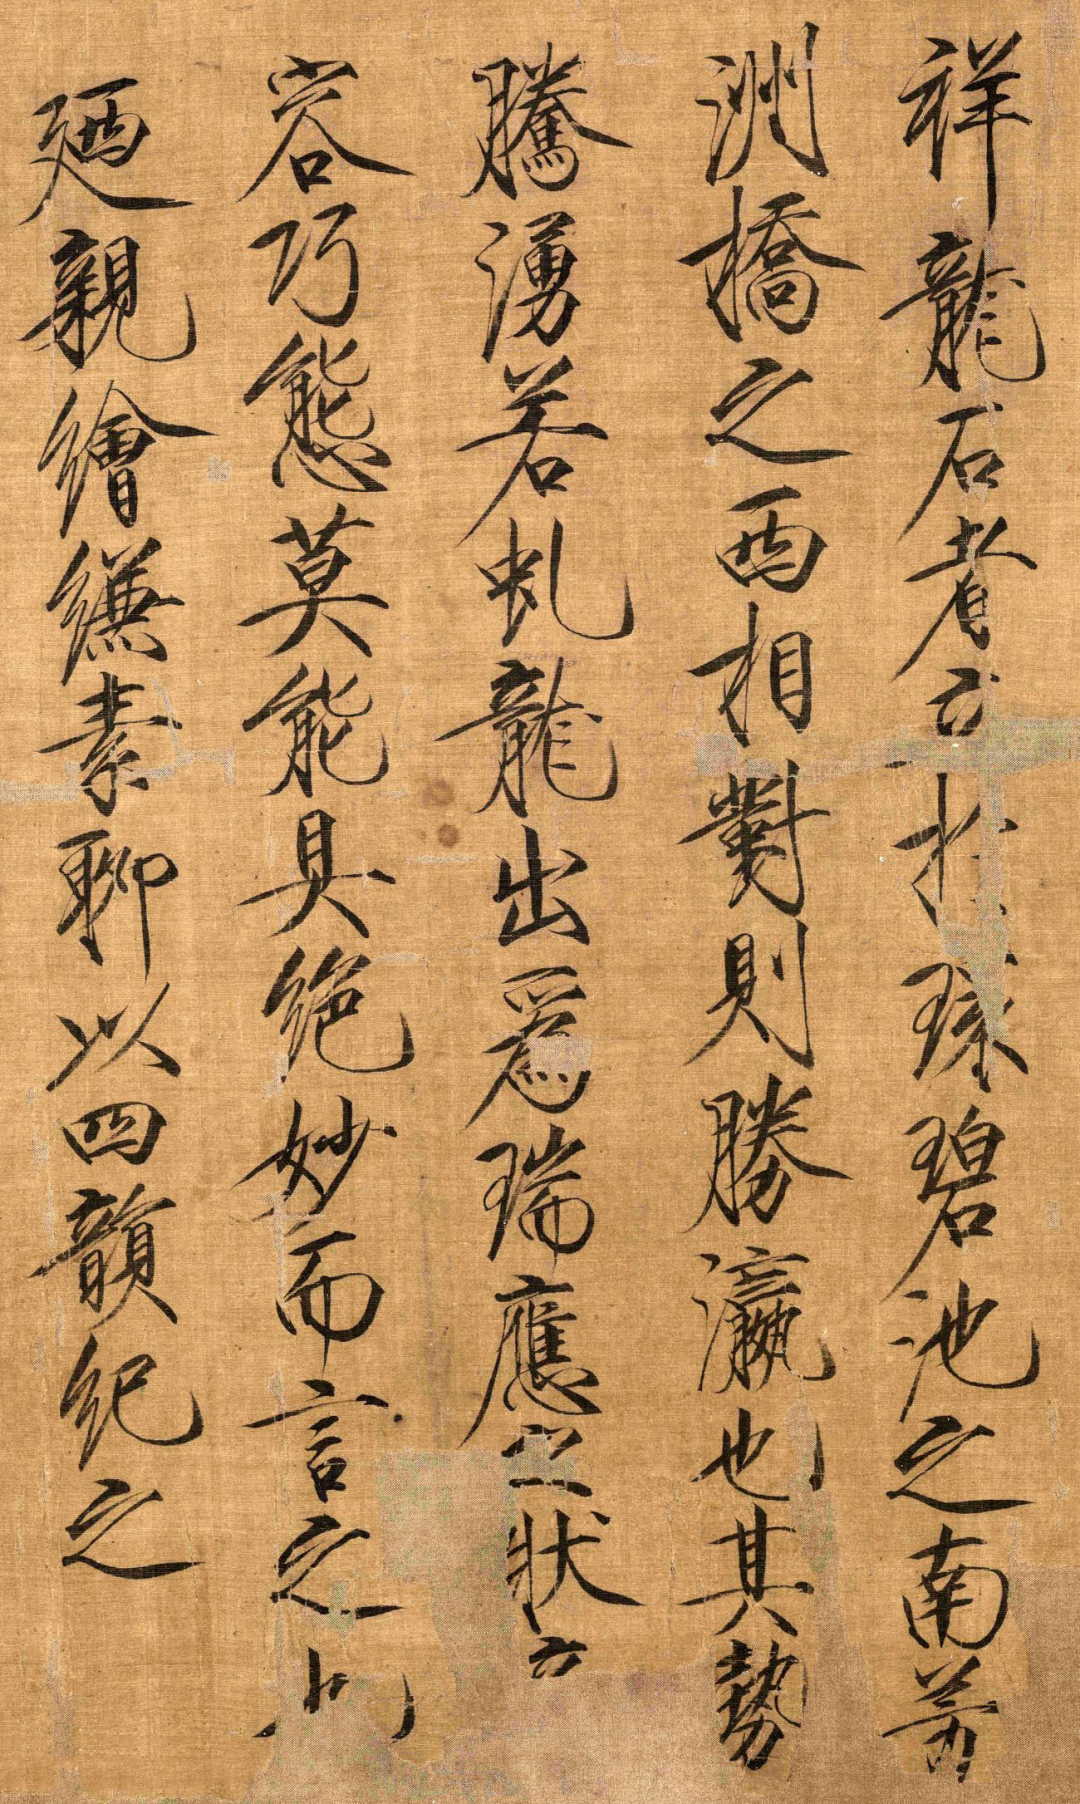 祥龍石者立於環碧池之南芳
洲橋之西相對則勝瀛也其勢
騰湧若虬龍出爲瑞應之狀奇
容巧態莫能具絶妙而言之也
廼親繪縑素聊以四韻紀之